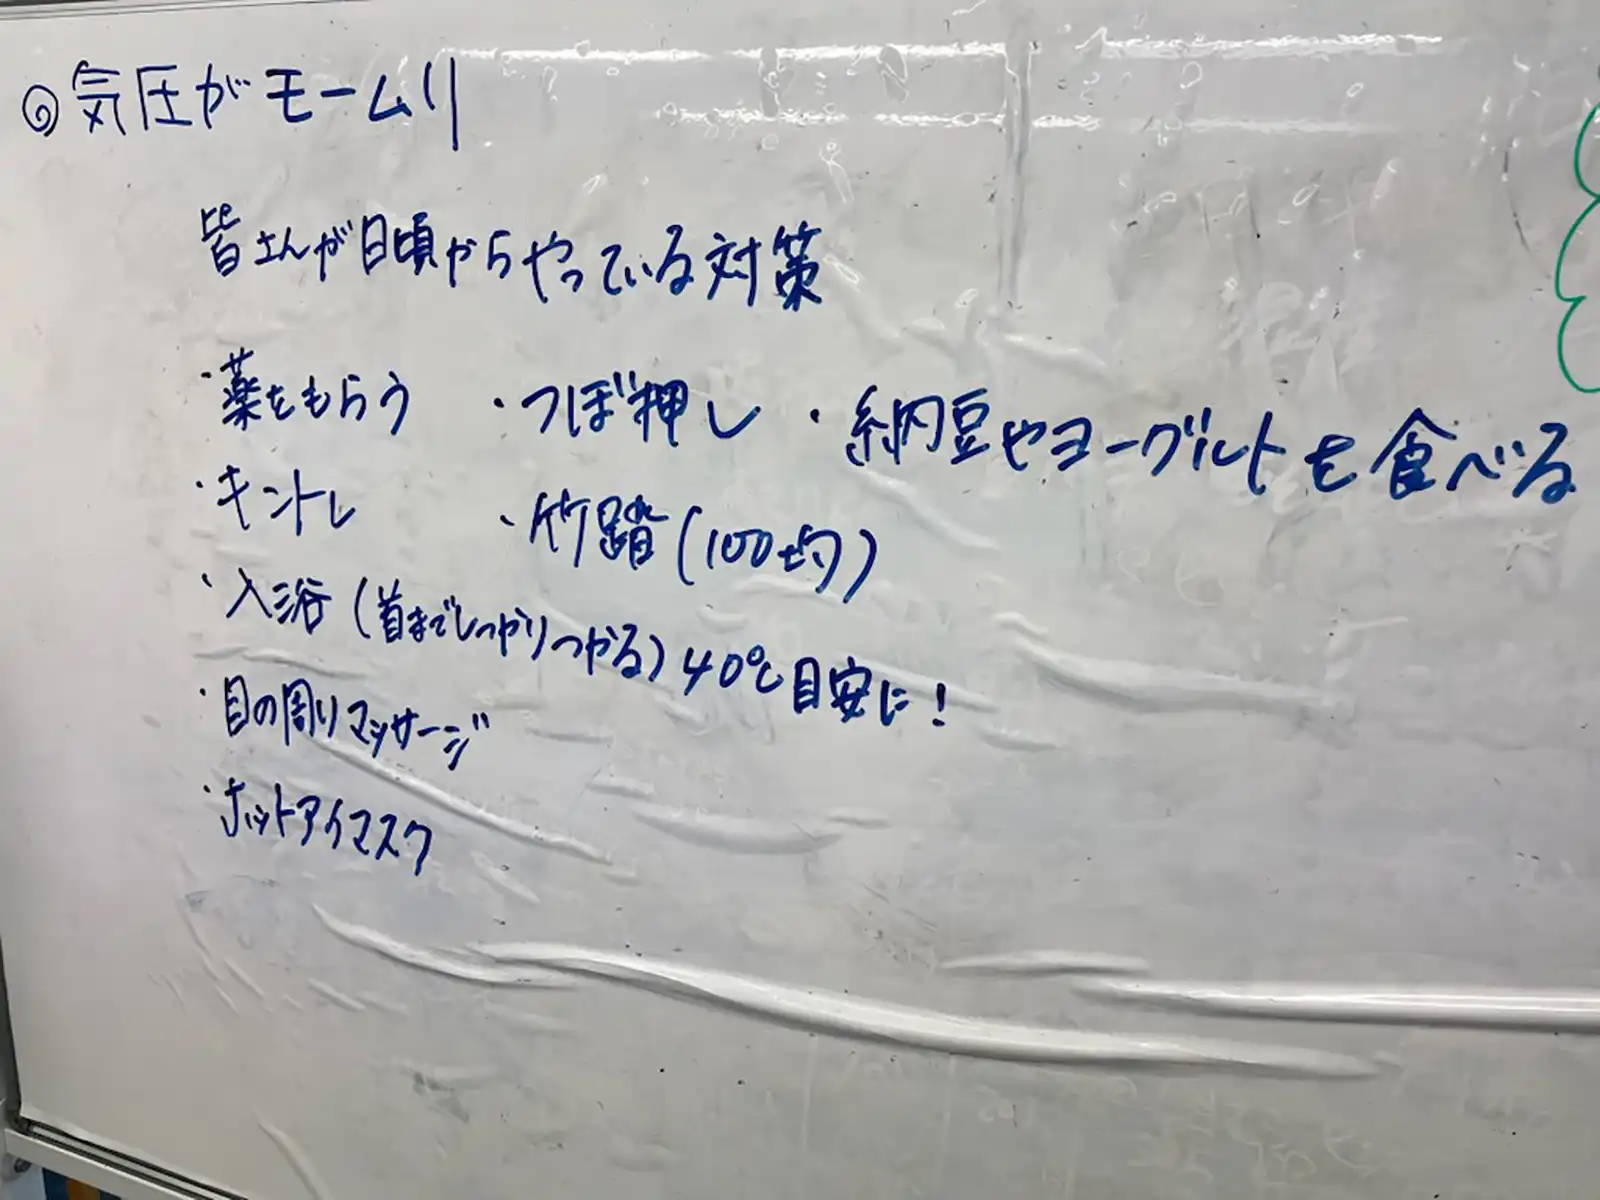 ◎気圧がモームリ
皆さんが日頃からやっている対策
・薬をもらう ・つぼ押し ・納豆やヨーグルトを食べる
・キントレ ・竹踏(100均)
・入浴(首までしっかりつかる)40℃目安に!
・目の周りマッサージ
・ホットアイマスク